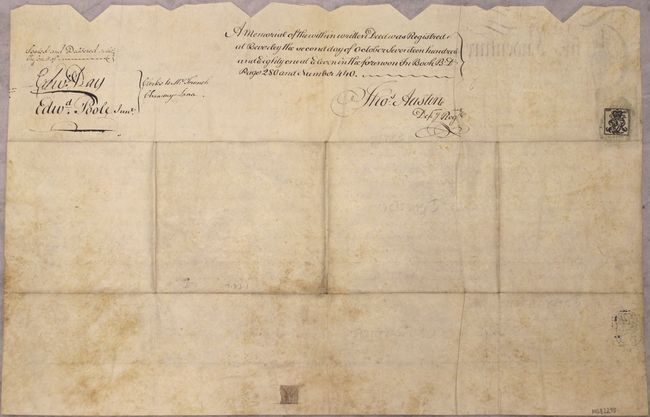 Signed and Delivered
Edwd. Day
Edwd. Poole Junr.
Clerks to Mr. French
Chancery Lane
A Memorial of the within written Deed was Registred
at Beverley the second day of October Seventeen hundred
and Eighty one at Eleven in the forenoon In Book B.D.
Page 280 and Number 440.
Thos. Austen
Dep. Regr.